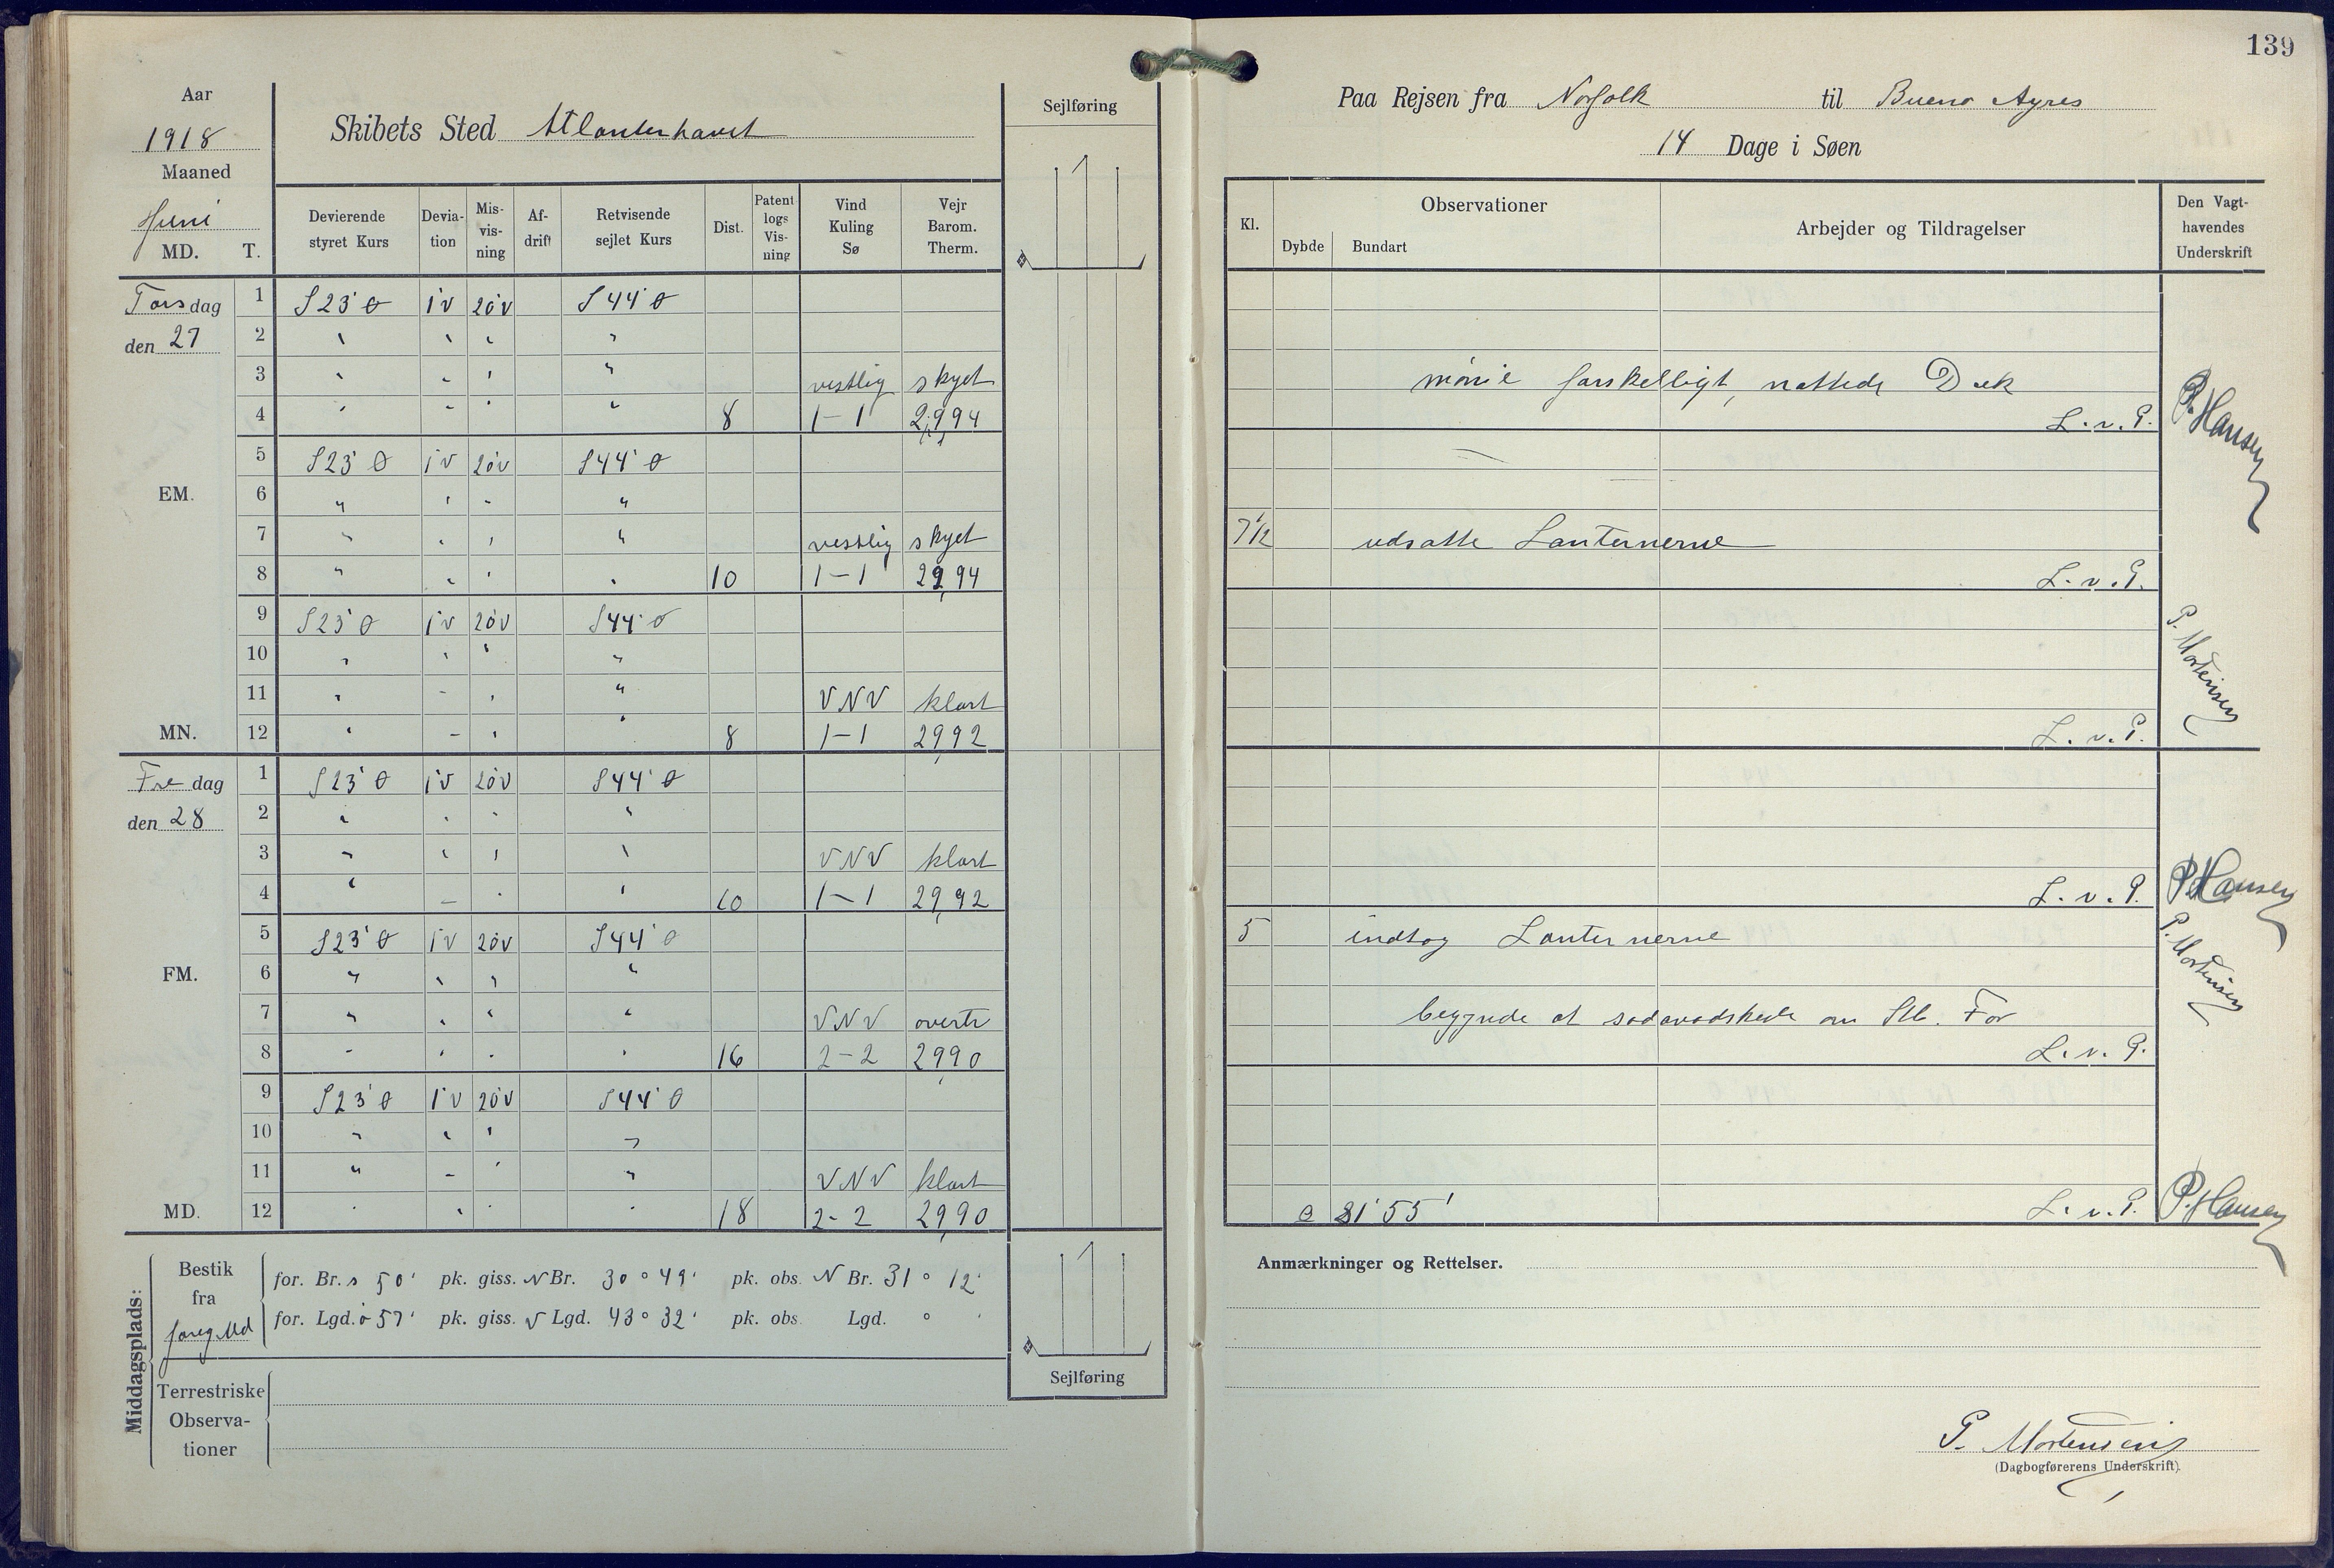 139
Aar
1918
Maaned
Juni
MD. T.
Skibets Sted Atlanterhavet
Sejlføring
Devierende styret Kurs
Devia-tion
Mis-vis-ning
Af-drift
Retvisende sejlet Kurs
Dist.
Patent logs Vis-ning
Vind Kuling Sø
Vejr Barom. Therm.
Torsdag 1 S23°Ø 1°V 20°V S44°Ø
den 27 2 " " " "
3 " " " " vestlig skyet
4 " " " " 8 1-1 29,94
5 S23°Ø 1°V 20°V S44°Ø
EM. 6 " " " "
7 " " " " vestlig skyet
8 " " " " 10 1-1 29,94
9 S23°Ø 1°V 20°V S44°Ø
10 " " " "
11 " " " " VNV klart
MN. 12 " " " " 8 1-1 29,92
Fredag 1 S23°Ø 1°V 20°V S44°Ø
den 28 2 " " " "
3 " " " " VNV klart
4 " " " " 10 1-1 29,92
5 S23°Ø 1°V 20°V S44°Ø
FM. 6 " " " "
7 " " " " VNV overtr
8 " " " " 16 2-2 29,90
9 S23°Ø 1°V 20°V S44°Ø
10 " " " "
11 " " " " VNV klart
MD. 12 " " " " 18 2-2 29,90
Middagsplads:
Bestik fra foreg Md
for. Br. s 50' pk. giss. N Br. 30° 49' pk. obs. N Br. 31° 12'
for. Lgd. ø 57' pk. giss. V Lgd. 43° 32' pk. obs. Lgd. ° '
Terrestriske Observa-tioner
Sejlføring
Paa Rejsen fra Norfolk til Bueno Ayres
14 Dage i Søen
Kl.
Observationer
Dybde Bundart
Arbejder og Tildragelser
Den Vagt-havendes Underskrift
mønie forskelligt, nattede Dæk
L. v. P. P. Hansen
7½ udsatte Lanternerne
L. v. P.
P. Mortensen
L. v. P.
L. v. P. P. Hansen
5 indtog Lanternerne
P. Mortensen
begynde at sodavadske om Stb. For
L. v. P.
31° 55' L. v. P. P. Hansen
Anmærkninger og Rettelser.
P. Mortensen
(Dagbogførerens Underskrift).